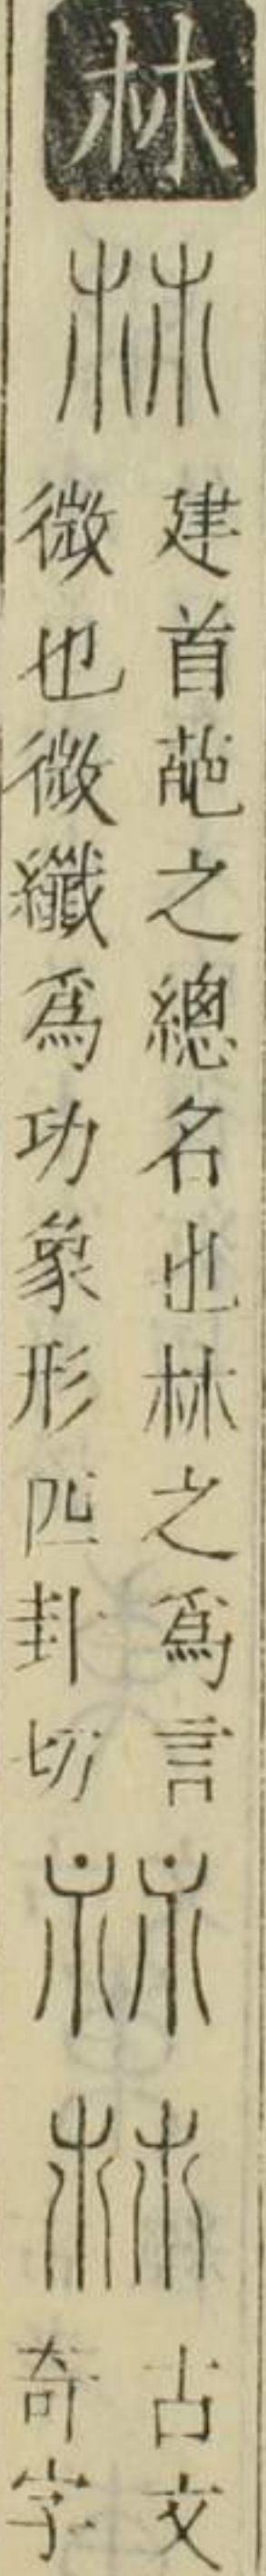 𣏟
𣏟
建首葩之總名也𣏟之爲言
微也微纖爲功象形匹卦切
𣏟
𣏟
古文
奇字